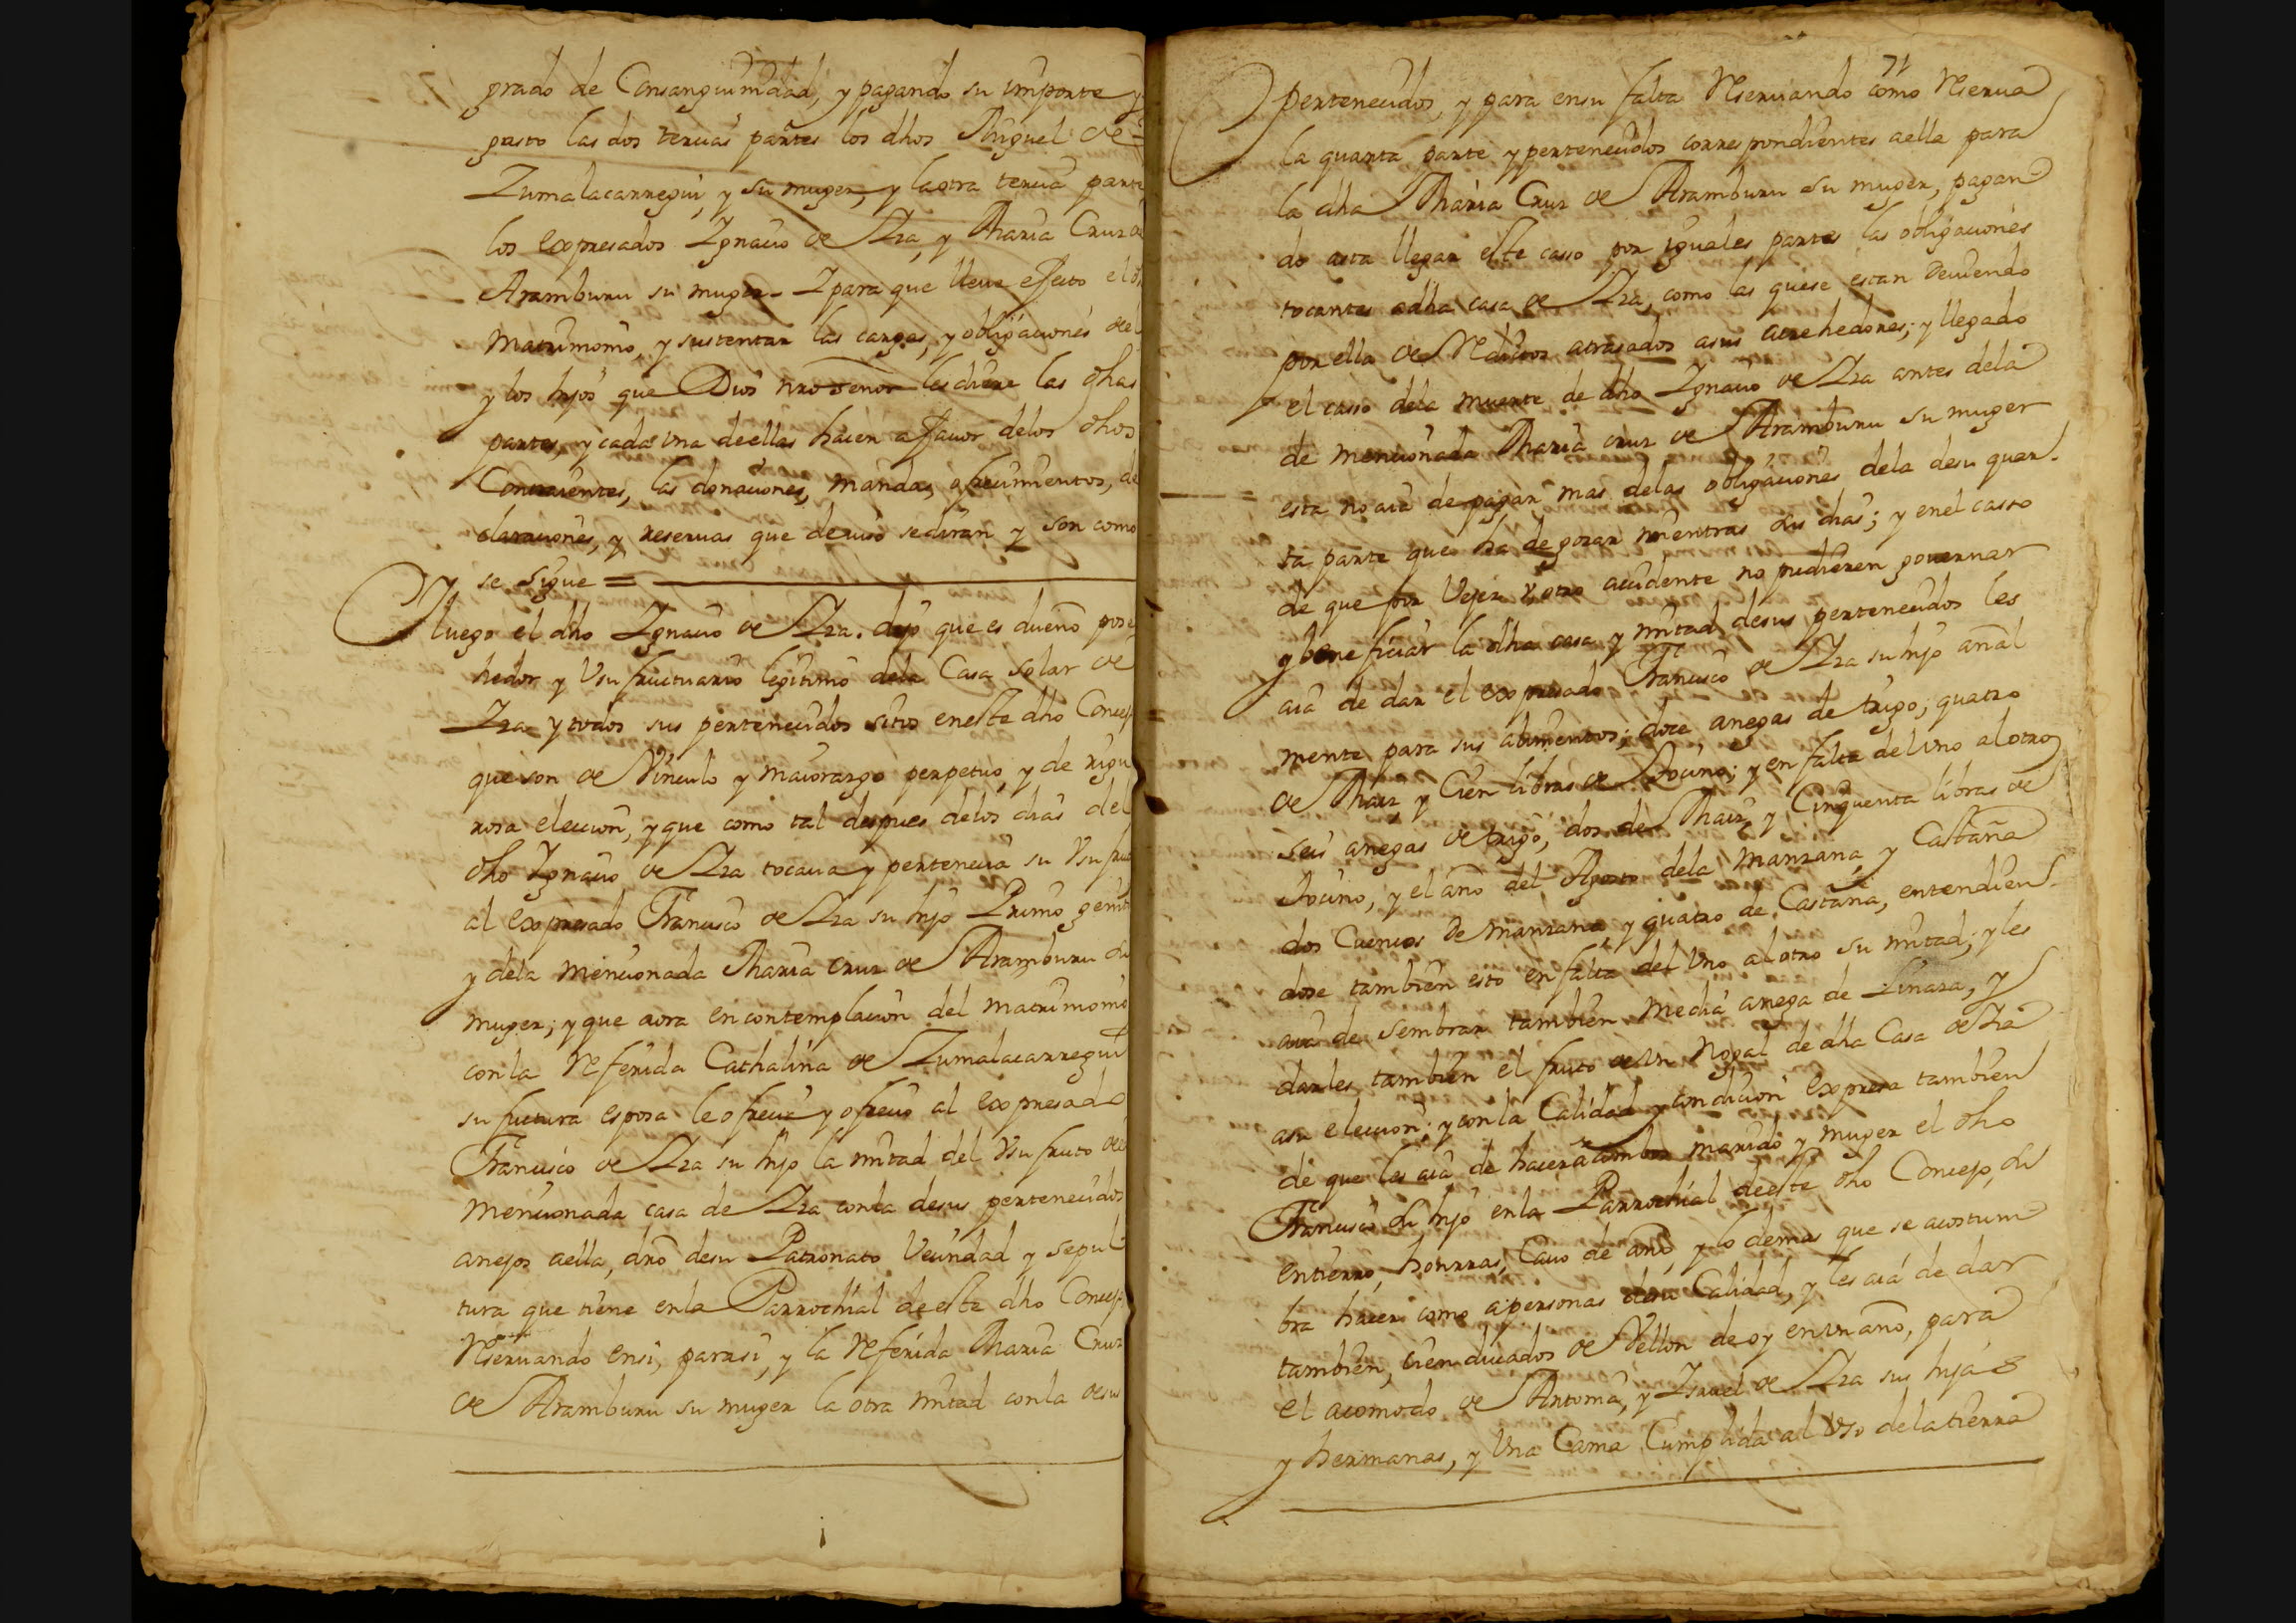 grado de Consanguinidad, y pagando su importe y
gasto las dos tercias partes los dhos Miguel de
Zumalacarregui, y su muger, y la otra tercia parte
los expresados Ignacio de Iza, y Maria Cruz de
Aramburu su muger. Y para que lleue efecto el
matrimonio, y sustentar las cargas, y obligaciones del
y los hijos que Dios nro señor les diere las dhas
partes, y cada vna de ellas hacen a ffauor de los dhos
Contraientes, las donaciones, mandas, ofrecimientos, de
claraciones, y reseruas que de iuso se diran y son como
se sigue =
Y luego el dho Ignacio de Iza. dijo que es dueño pose
hedor y Vsufructuario legitimo dela Casa Solar de
Iza y todos sus pertenecidos sitos en este dho Concejo
que son de Vinculo y maiorazgo perpetuo, y de rigu
rosa eleccion, y que como tal despues delos dias del
dho Ignacio de Iza tocaua y pertenecia su Vsufruto
al expresado Francisco de Iza su hijo Primo genito
y dela mencionada Maria Cruz de Aramburu su
muger; y que aora en contemplacion del matrimonio
con la Referida Cathalina de Zumalacarregui
su futura esposa le ofrecia y ofrecio al expresado
Francisco de Iza su hijo la mitad del Vsufruto dela
mencionada casa de Iza con la de sus pertenecidos
anejos a ella, dro de su Patronato Vecindad y sepul
tura que tiene en la Parrochial de este dho Concejo
Reseruando en si, para si, y la Referida Maria Cruz
de Aramburu su muger la otra mitad con la de sus
71
pertenecidos, y para en su falta Reseruando como Reserua
la quarta parte y pertenecidos correspondientes a ella para
la dha Maria Cruz de Aramburu su muger, pagan
do asta llegar este caso por iguales partes las obligaciones
tocantes a dha casa de Iza, como las que se estan deuiendo
por ella de Reditos atrasados a sus acrehedores; y llegado
el casso dela muerte de dho Ignacio de Iza antes dela
de mencionada Maria Cruz de Aramburu su muger
esta no aia de pagar mas delas obligaciones dela de su quar
ta parte que ha de gozar mientras sus dias; y en el casso
de que por Vejez, v otro accidente no pudieren gouernar
y beneficiar la dha casa y mitad de sus pertenecidos les
aia de dar el expresado Francisco de Iza su hijo añal
mente para sus alimentos; doce anegas de trigo; quatro
de Maiz, y Cien libras de Tocino; y en falta del vno al otro
seis anegas de trigo, dos de Maiz, y Cinquenta libras de
tocino, y el año del Agosto dela manzana, y Castaña
dos Cuencos de manzana, y quatro de Castaña, entendien
dose tambien esto en falta del vno al otro su mitad; y les
aia de sembrar tambien media anega de Linaza, y
darles tambien el fruto de vn Nogal de dha Casa de Iza
a su eleccion; y con la Calidad y condicion expresa tambien
de que les aia de hacer a ambos marido y muger el dho
Francisco su hijo en la Parrochial de este dho Concejo, su
entierro, honrras, Cauo de año, y lo demas que se acostum
bra hacer como a personas de su Calidad, y les aia de dar
tambien, cien ducados de Vellon de oy en vn año, para
el acomodo de Antonia, y Isauel de Iza sus hijas
y hermanas, y Vna Cama Cumplida al Vso dela tierra